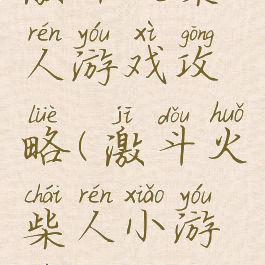 rén yóu xì gōng
人游戏攻
lüè jī dǒu huǒ
略(激斗火
chái rén xiǎo yóu
柴人小游